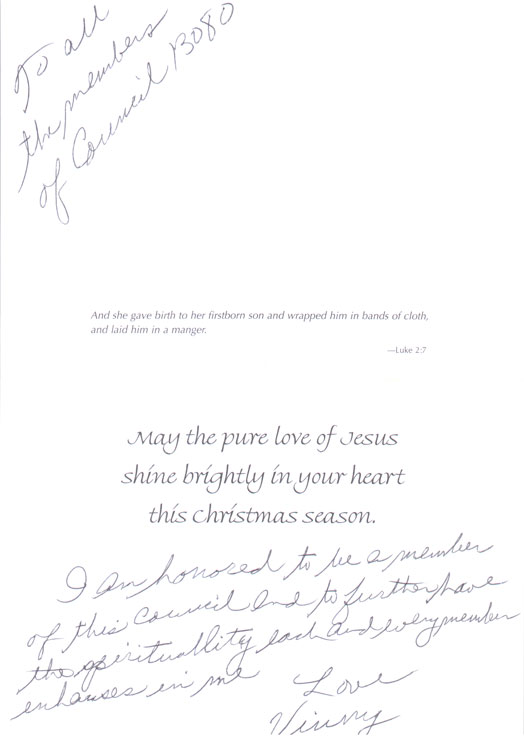 To all
the members
of Council 13080
And she gave birth to her firstborn son and wrapped him in bands of cloth,
and laid him in a manger.
—Luke 2:7
May the pure love of Jesus
shine brightly in your heart
this Christmas season.
I am honored to be a member
of this Council and to further have
the spirituallity each and every member
enhauses in me
Love
Vinny